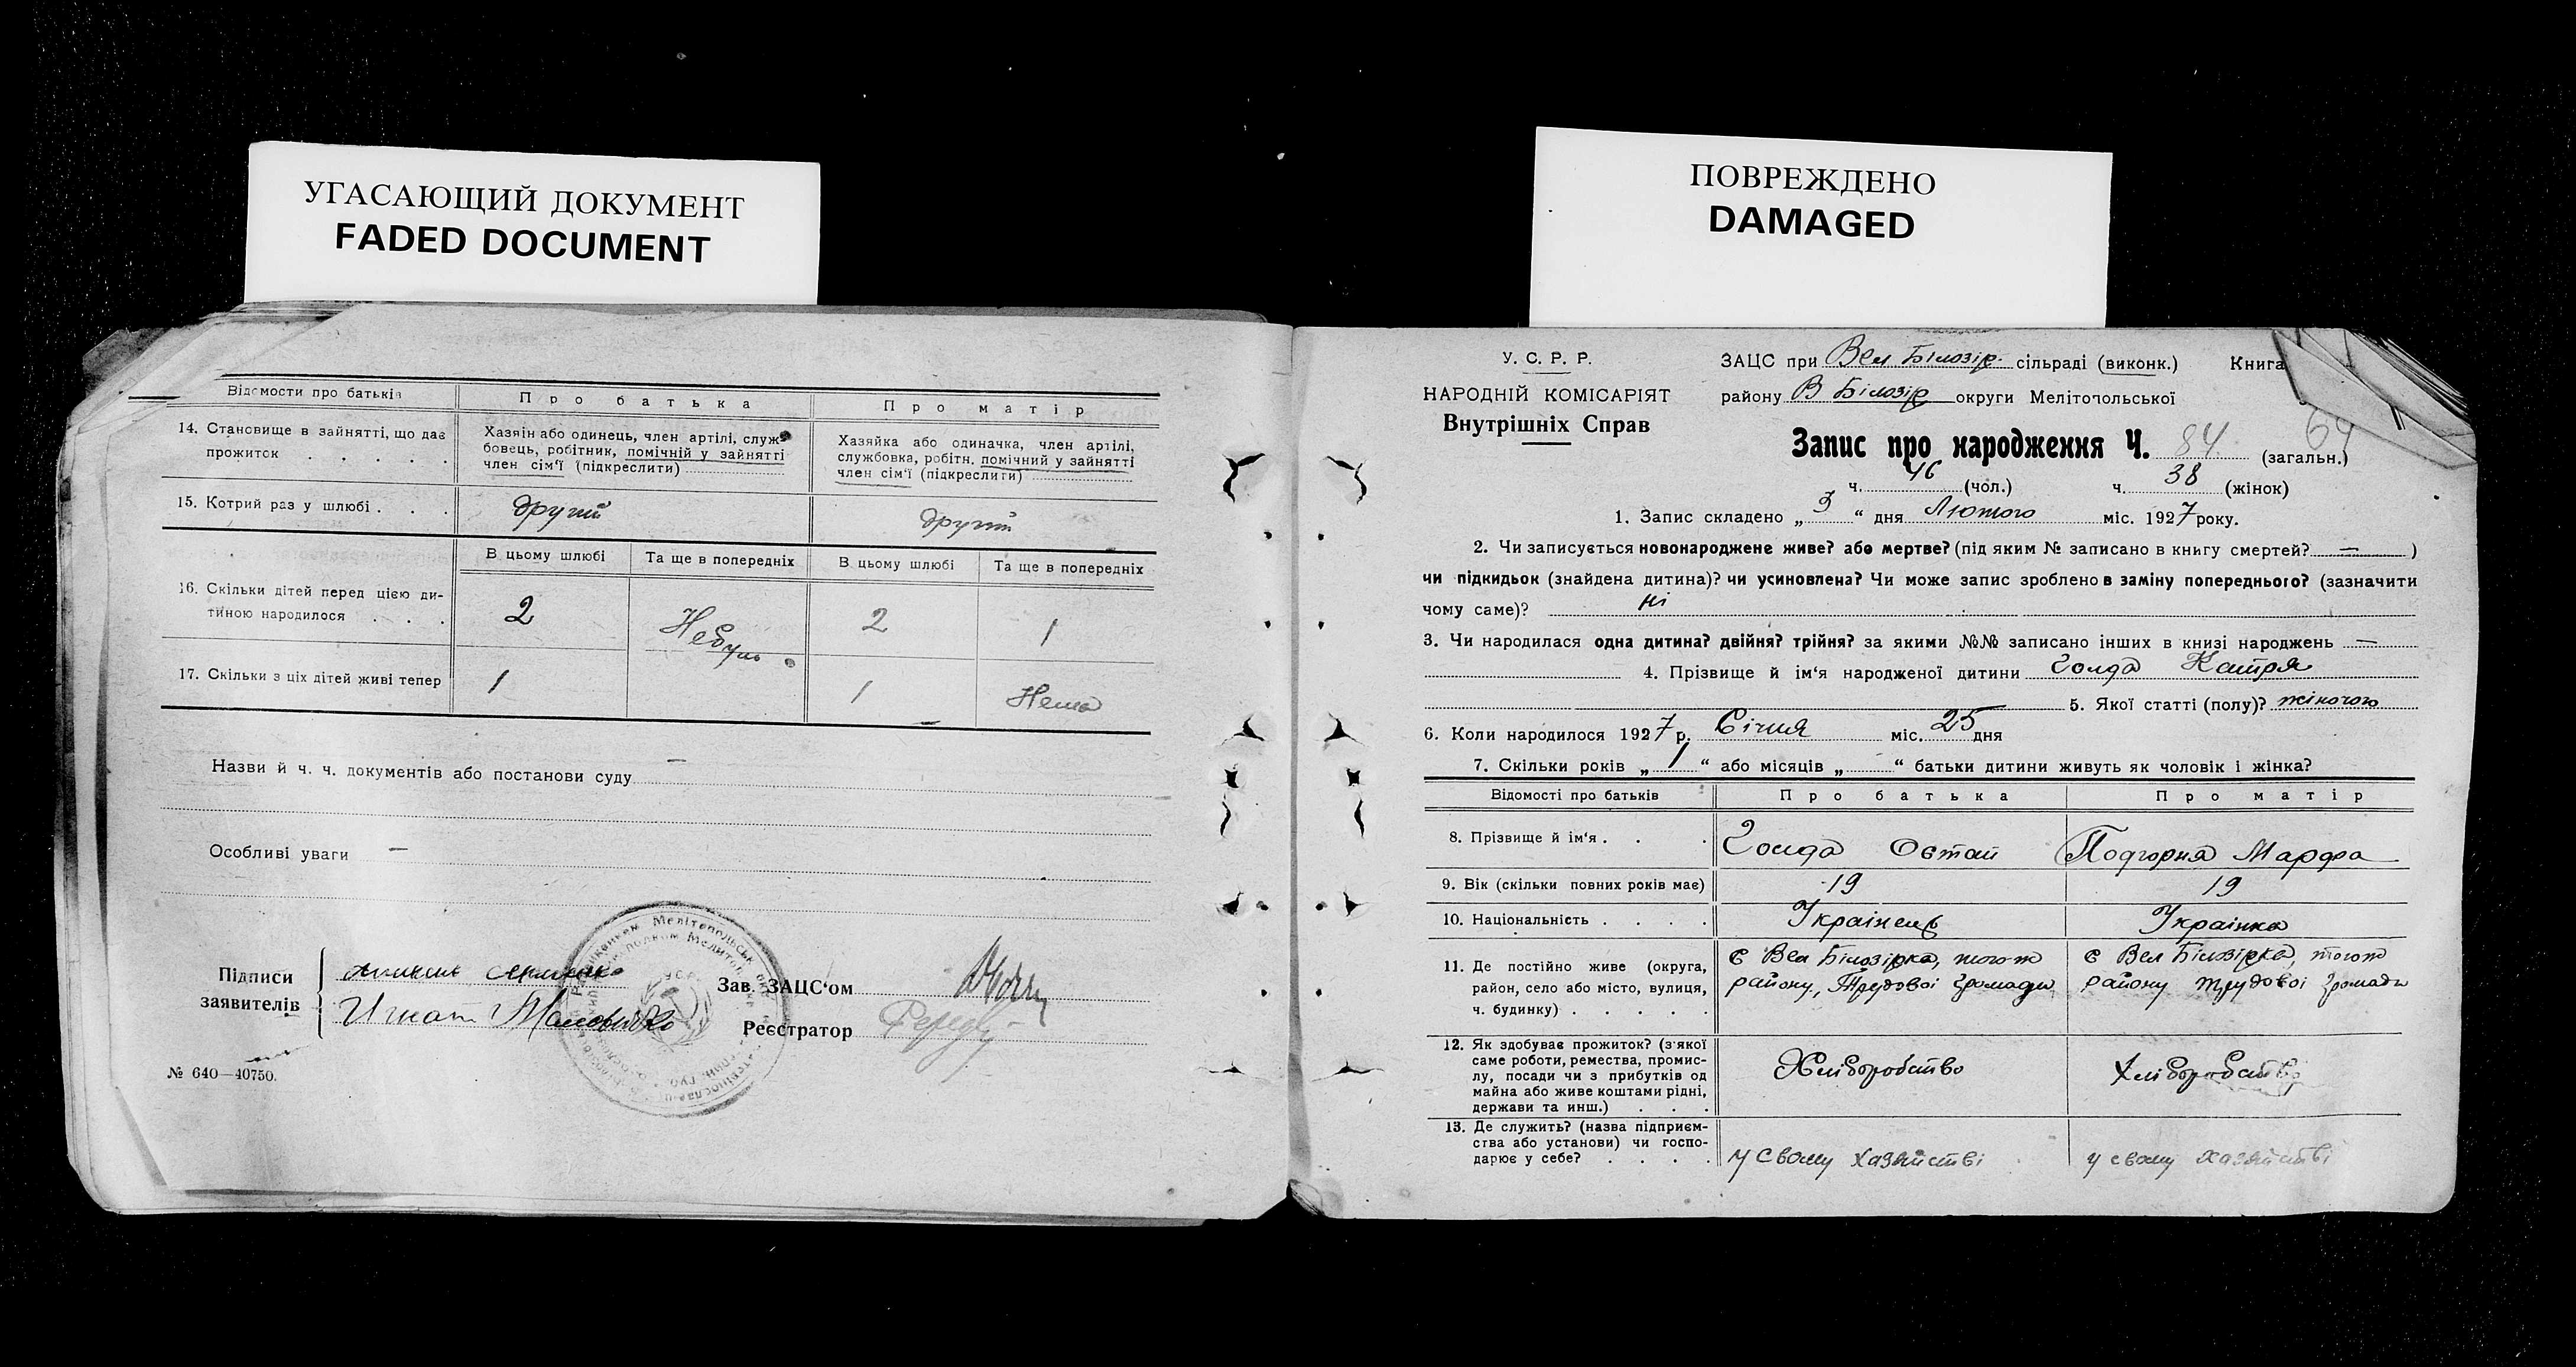 УГАСАЮЩИЙ ДОКУМЕНТ
FADED DOCUMENT
Відомости про батьків
Про батька
Про матір
14. Становище в зайнятті, що дає
прожиток . . . . .
Хазяїн або одинець, член артілі, служ-
бовець, робітник, помічній у зайнятті
член сім'ї (підкреслити)
Хазяйка або одиначка, член артілі,
службовка, робітн. помічний у зайнятті
член сім'ї (підкреслити)
15. Котрий раз у шлюбі . . .
другий
другий
В цьому шлюбі
Та ще в попередніх
В цьому шлюбі
Та ще в попередніх
16. Скільки дітей перед цією ди-
тиною народилося . . .
2
Небуло
2
1
17. Скільки з ціх дітей живі тепер
1
1
Нема
Назви й ч. ч. документів або постанови суду —
Особливі уваги —
Підписи
заявителів
Игнат
Зав. ЗАЦС'ом
Реєстратор
№ 640—40750.
ПОВРЕЖДЕНО
DAMAGED
У. С. Р. Р.
НАРОДНІЙ КОМІСАРІЯТ
Внутрішніх Справ
ЗАЦС при Вел Білозір. сільраді (виконк.) Книга
району В Білозір округи Мелітопольської
64
Запис про народження Ч. 84. (загальн.)
ч. 46 (чол.) ч. 38 (жінок)
1. Запис складено „ 3 “ дня Лютого міс. 1927 року.
2. Чи записується новонароджене живе? або мертве? (під яким № записано в книгу смертей? — )
чи підкидьок (знайдена дитина)? чи усиновлена? Чи може запис зроблено в заміну попереднього? (зазначити
чому саме)? ні
3. Чи народилася одна дитина? двійня? трійня? за якими №№ записано інших в книзі народжень —
4. Прізвище й ім'я народженої дитини Голда Катря
5. Якої статті (полу)? жіночого
6. Коли народилося 1927 р. Січня міс. 25 дня
7. Скільки років „ 1 “ або місяців „ “ батьки дитини живуть як чоловік і жінка?
Відомості про батьків
Про батька
Про матір
8. Прізвище й ім'я . . .
Голда Остап
Подгорня Марфа
9. Вік (скільки повних років має)
19
19
10. Національність . . . .
Українець
Українка
11. Де постійно живе (округа,
район, село або місто, вулиця,
ч. будинку) . . . . .
С Вел Білозірка, тогож
району, Трудової громади
С Вел Білозірка, тогож
району Трудової громади
12. Як здобуває прожиток? (з'якої
саме роботи, ремества, промис-
лу, посади чи з прибутків од
майна або живе коштами рідні,
держави та инш.) . . .
Хліборобство
Хліборобство
13. Де служить? (назва підприєм-
ства або установи) чи госпо-
дарює у себе? . . . .
у свому хазяйстві
у свому хазяйстві